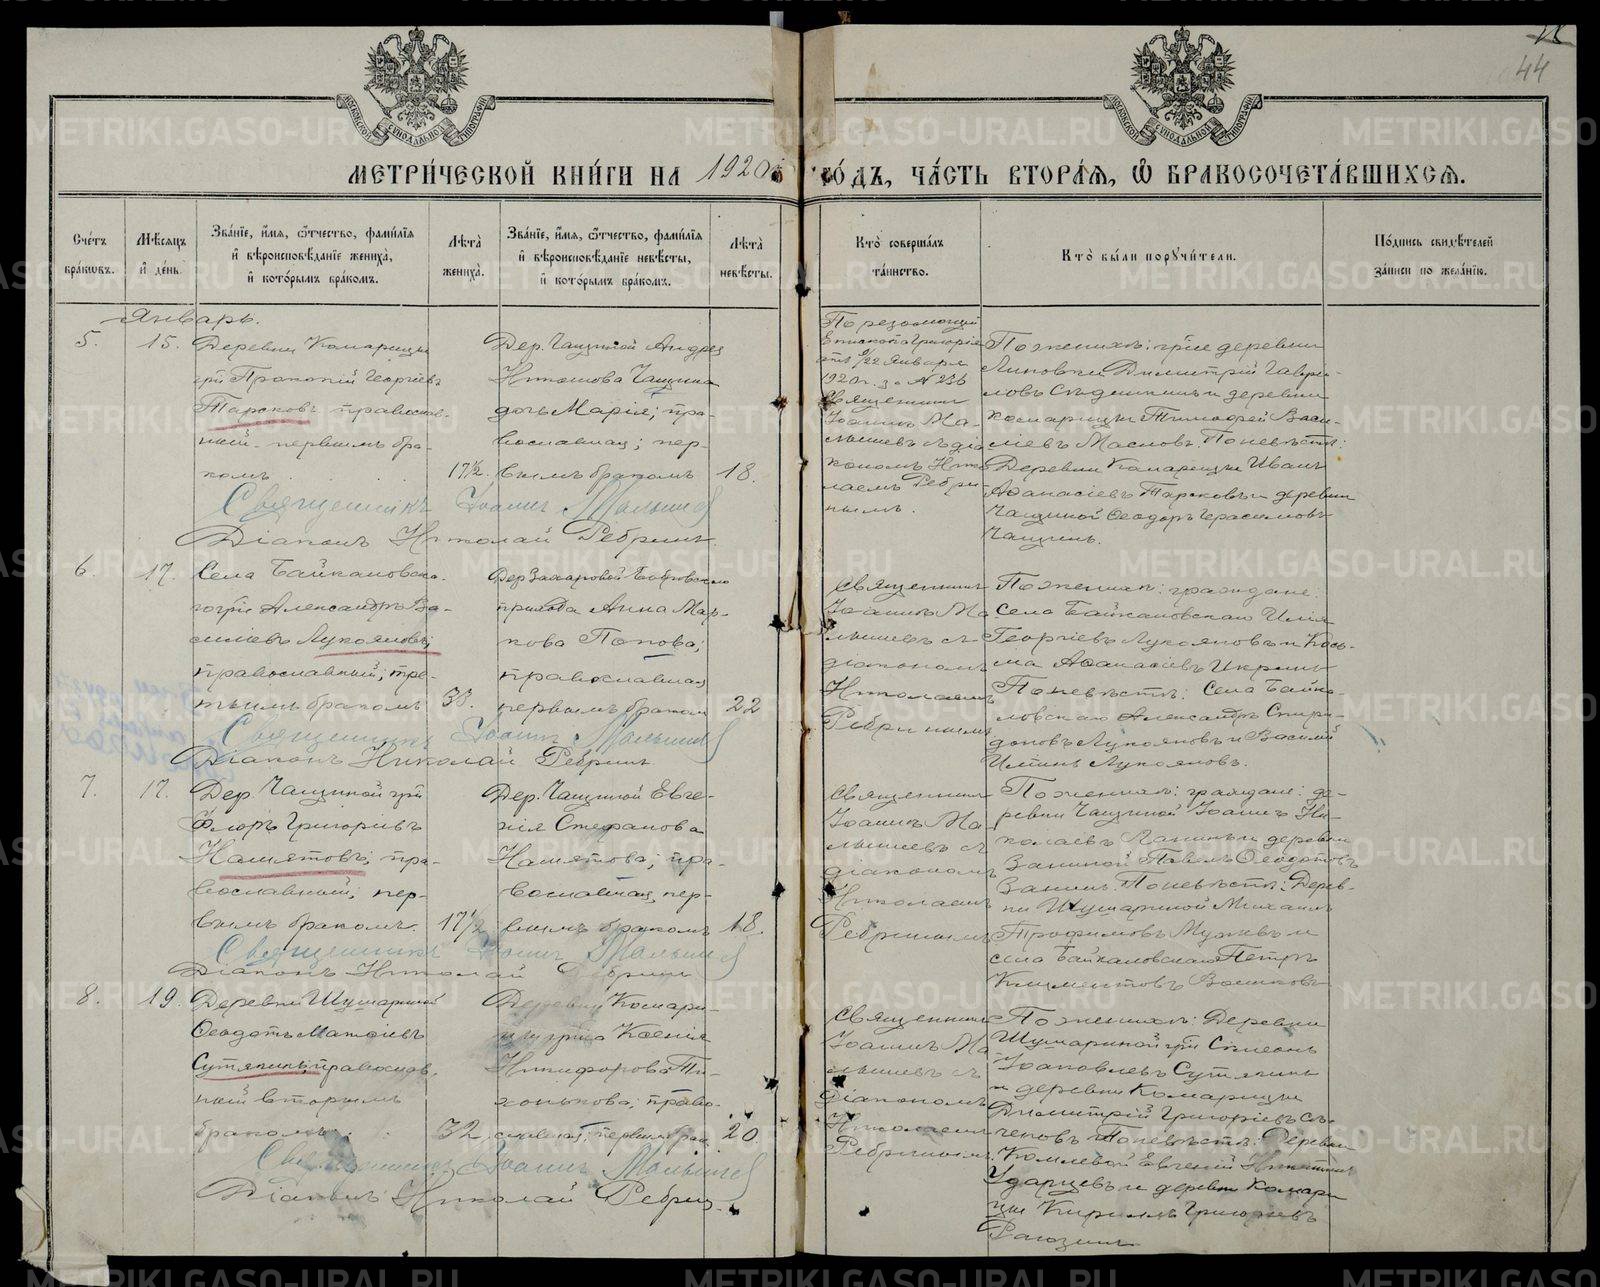 44
МЕТРИ́ЧЕСКОЙ КНИ́ГИ НА 1920й ГО́ДЪ, ЧА́СТЬ ВТОРА́Я, Ѡ БРАКОСОЧЕТА́ВШИХСЯ.
Сче́тъ бра́ковъ.
Мѣ́сяцъ и́ де́нь.
Зва́нїе, и́мя, ѻ́тчество, фами́лїя и́ вѣроисповѣ́данїе жениха̀, и́ кото́рымъ бра́комъ.
Лѣта̀ жениха̀.
Зва́нїе, и́мя, ѻ́тчество, фами́лїя и́ вѣроисповѣ́данїе невѣ́сты, и́ кото́рымъ бра́комъ.
Лѣта̀ невѣ́сты.
Кто̀ соверша́лъ та́инство.
Кто̀ бы́ли порꙋчи́тели.
По́дпись свидѣ́телей за́писи по жела́нїю.
Январь.
5.
15.
Деревни Комарицы
гр̄н Прокопій Георгіевъ
Тарсковъ православ-
ный первымъ бра-
комъ
17½.
Дер. Чащиной Андрея
Чащина
дочь Марія; пра-
вославная; пер-
вымъ бракомъ
18.
По резолюціи
Епископа Григорія
отъ 9/22 Января
1920 г. за №
Священникъ
Іоаннъ Ма-
лышевъ съ діа-
кономъ Нико-
лаемъ Ребри-
нымъ.
По женихѣ: гр̄не деревни
Липовки Димитрій Гаври-
ловъ и деревни
Комарицы Тимофей Васи-
ліевъ Масловъ. По невѣстѣ:
Деревни Комарицы Иванъ
Аѳанасіевъ Тарсковъ и деревни
Чащиной Ѳеодоръ Герасимовъ
Чащинъ.
Священникъ Іоаннъ Малышев
Діаконъ Николай Ребринъ
6.
17.
Села Байкаловска-
го гр̄н Александръ Ва-
силіевъ Лукояновъ;
православный; тре-
тьимъ бракомъ
33.
Дер. Захаровой Бобровскаго
прихода Анна Мар-
кова Попова;
православная
первымъ браком
22
Священникъ
Іоаннъ Ма-
лышевъ съ
діакономъ
Николаемъ
Ребринымъ
По женихѣ: граждане:
Села Байкаловскаго Илія
Георгіевъ Лукояновъ и Кось-
ма Аѳанасіевъ Икринъ
По невѣстѣ: Села Байка-
ловскаго Александръ Спири-
доновъ Лукояновъ и Василій
Лукояновъ.
Священникъ Іоаннъ Малышев
Діаконъ Николай Ребринъ
7.
17.
Дер. Чащиной гр̄н
Флоръ Григоріевъ
Намятовъ; пра-
вославный; пер-
вымъ бракомъ.
17½
Дер. Чащиной Евге-
нія Стефанова
Намятова; пра-
вославная, пер-
вымъ бракомъ
18.
Священникъ
Іоаннъ Ма-
лышевъ съ
діакономъ
Николаемъ
Ребринымъ
По женихѣ: граждане: де-
ревни Чащиной Іоаннъ Ни-
колаевъ и деревни
Заниной Павелъ Ѳеодотовъ
Занинъ. По невѣстѣ: Дерев-
ни Шушариной Михаилъ
Трофимовъ и
села Байкаловскаго Петръ
Климентовъ
Священникъ Іоаннъ Малышев
Діаконъ Николай Ребринъ
8.
19.
Деревни Шушариной
Ѳеодотъ Матѳіевъ
Сутягинъ; православ.
ный вторымъ
бракомъ.
32
Деревни Комари-
цы гр̄ка Ксенія
Никифорова Ти-
хонькова; право-
славная; первымъ брак.
20.
Священникъ
Іоаннъ Ма-
лышевъ съ
діакономъ
Николаемъ
Ребринымъ
По женихѣ: Деревни
Шушариной гр̄н Симеонъ
Іоанновъ Сутягинъ
и деревни Комарицы
Димитрій Григоріевъ
По невѣстѣ: Деревни
Комлевой Евгеній Никитинъ
Ударцевъ и деревни Комари
цы Кириллъ Григоріевъ
Священникъ Іоаннъ Малышев
Діаконъ Николай Ребрин.
METRIKI.GASO-URAL.RU